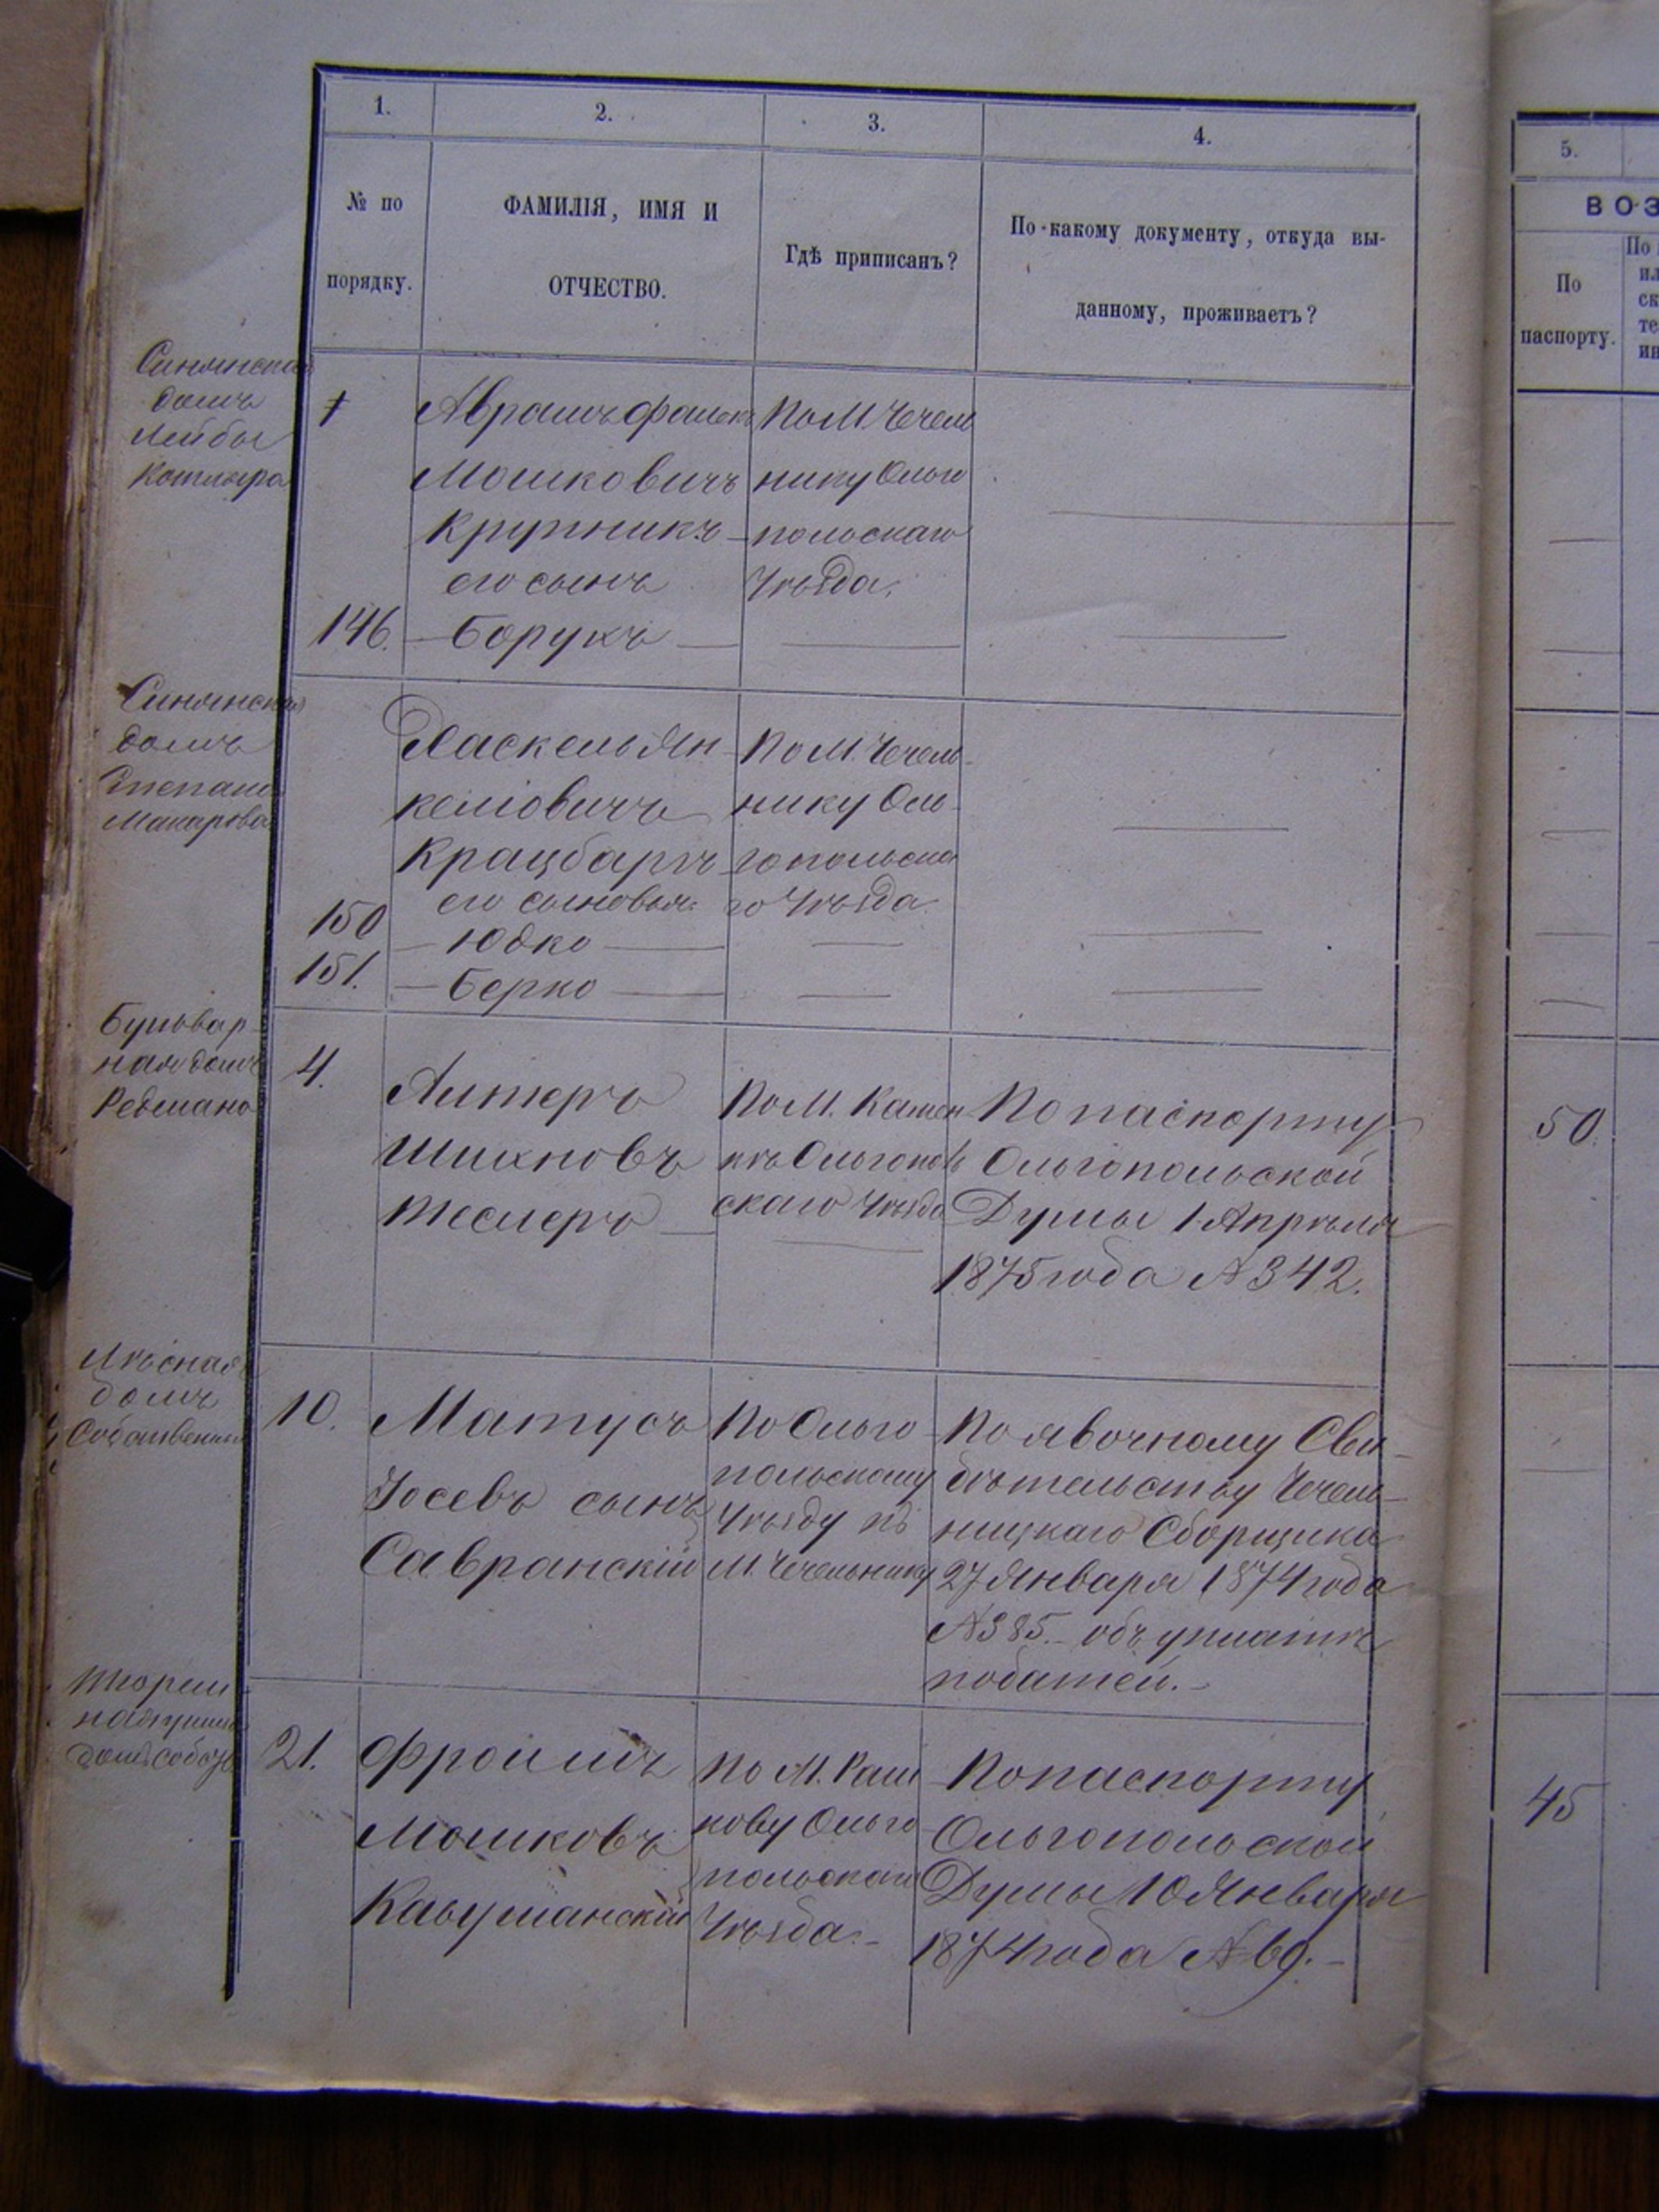 1.
2.
3.
4.
5.
№ по
порядку.
ФАМИЛІЯ, ИМЯ И
ОТЧЕСТВО.
Гдѣ приписанъ?
По какому документу, откуда вы-
данному, проживаетъ?
ВОЗ
По
паспорту.
По
ил
ск
те
ин
домъ
Лейбы
Котляра
1
Аврамъ
Мошковичъ
Крупникъ
его сынъ
146. Борукъ
По М. Чечель
нику Ольго
польскаго
Уѣзда.
домъ
Степана
Макарова
Хаскель Ян
келіовичъ
Крацбаргъ
его сыновья:
150 Юдко
151. Берко
По М. Чечель-
нику Оль-
гопольска
го Уѣзда
Бульвар-
ная домъ
Редмана
4.
Алтеръ
Шихновъ
Теслеръ
По М. Камен
кѣ Ольгополь
скаго Уѣзда
По паспорту
Ольгопольской
Думы 1 Апрѣля
1875 года № 342.
50.
Лѣсная
домъ
Собственный
10.
Матусъ
Іосевъ сынъ
Савранскій
По Ольго-
польскому
Уѣзду по
М. Чечельнику
По явочному Сви-
дѣтельству Чечель-
ницкаго Сборщика
27 Января 1874 года
№ 385. объ уплатѣ
податей.
21.
Фроимъ
Мошковъ
Каушанскій
По М. Раш
кову Ольго-
польскаго
Уѣзда.-
По паспорту
Ольгопольской
Думы 10 Января
1874 года № 69.-
45